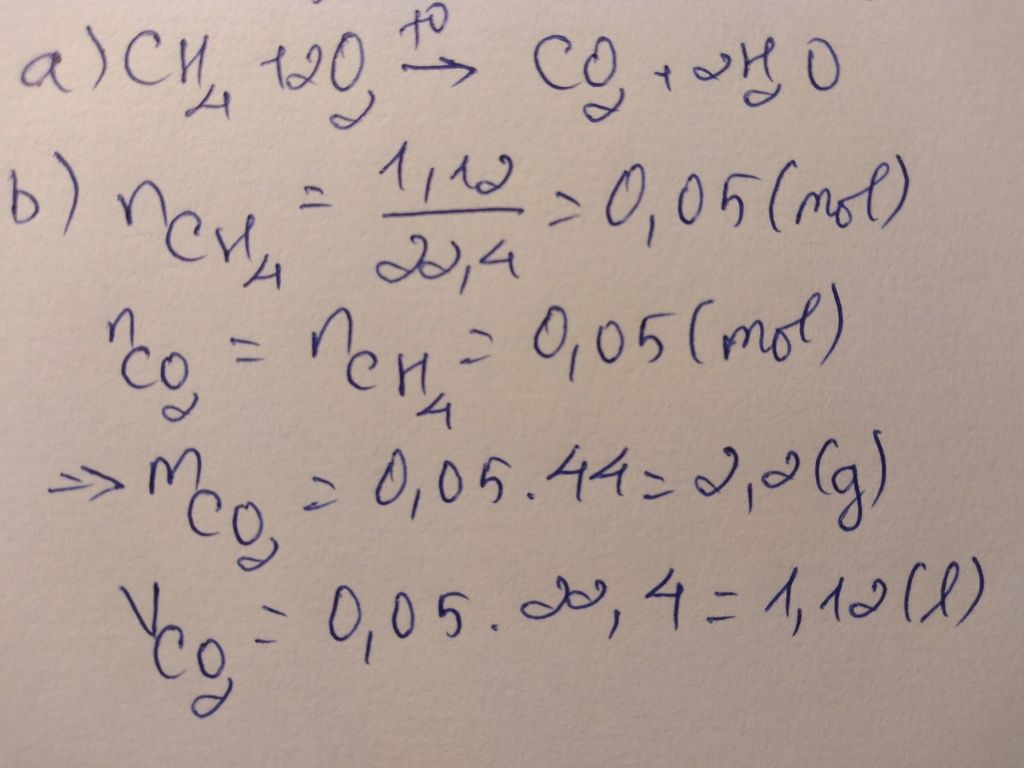 a) CH₄ + 2O₂ →(t⁰) CO₂ + 2H₂O
b) n_CH₄ = 1,12/22,4 = 0,05 (mol)
n_CO₂ = n_CH₄ = 0,05 (mol)
=> m_CO₂ = 0,05 . 44 = 2,2 (g)
V_CO₂ = 0,05 . 22,4 = 1,12 (l)